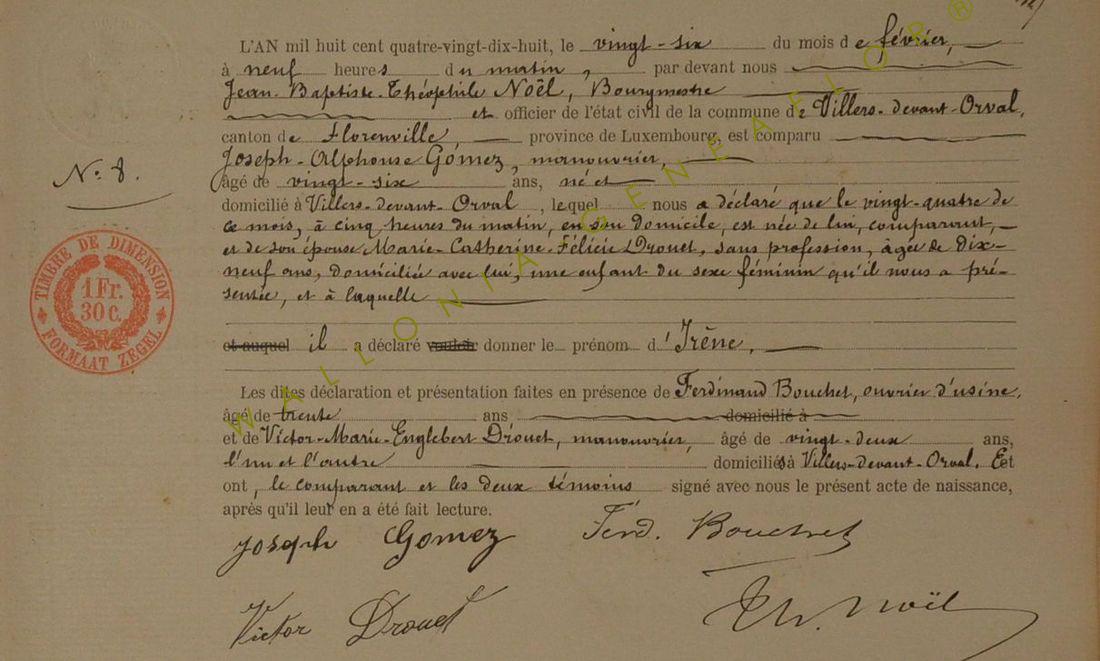 L'AN mil huit cent quatre-vingt-dix-huit, le vingt-six du mois de février,
à neuf heures du matin, par devant nous
Jean-Baptiste-Théophile Noël, Bourgmestre
et officier de l'état civil de la commune de Villers-devant-Orval,
canton de Florenville province de Luxembourg, est comparu
Joseph-Alphonse Gómez, manouvrier,
âgé de vingt-six ans, né et
domicilié à Villers-devant-Orval, lequel nous a déclaré que le vingt-quatre de
ce mois, à cinq heures du matin, en son domicile, est née de lui, comparant,
et de son épouse Marie-Catherine-Félicie Drouet, sans profession, âgée de dix-
neuf ans, domiciliée avec lui, une enfant du sexe féminin qu'il nous a pré-
sentée, et à laquelle
et auquel il a déclaré vouloir donner le prénom d'Irène,
Les dites déclaration et présentation faites en présence de Ferdinand Bouchet, ouvrier d'usine,
âgé de trente ans domicilié à
et de Victor-Marie-Englebert Drouet, manouvrier, âgé de vingt-deux ans,
l'un et l'autre domiciliés à Villers-devant-Orval. Et
ont, le comparant et les deux témoins signé avec nous le présent acte de naissance,
après qu'il leur en a été fait lecture.
Joseph Gomez Ferd. Bouchet
Victor Drouet Th. Noël
No. 8.
TIMBRE DE DIMENSION
1 Fr.
30 C.
FORMAAT ZEGEL
WALLONIA GENEAFLOR ®